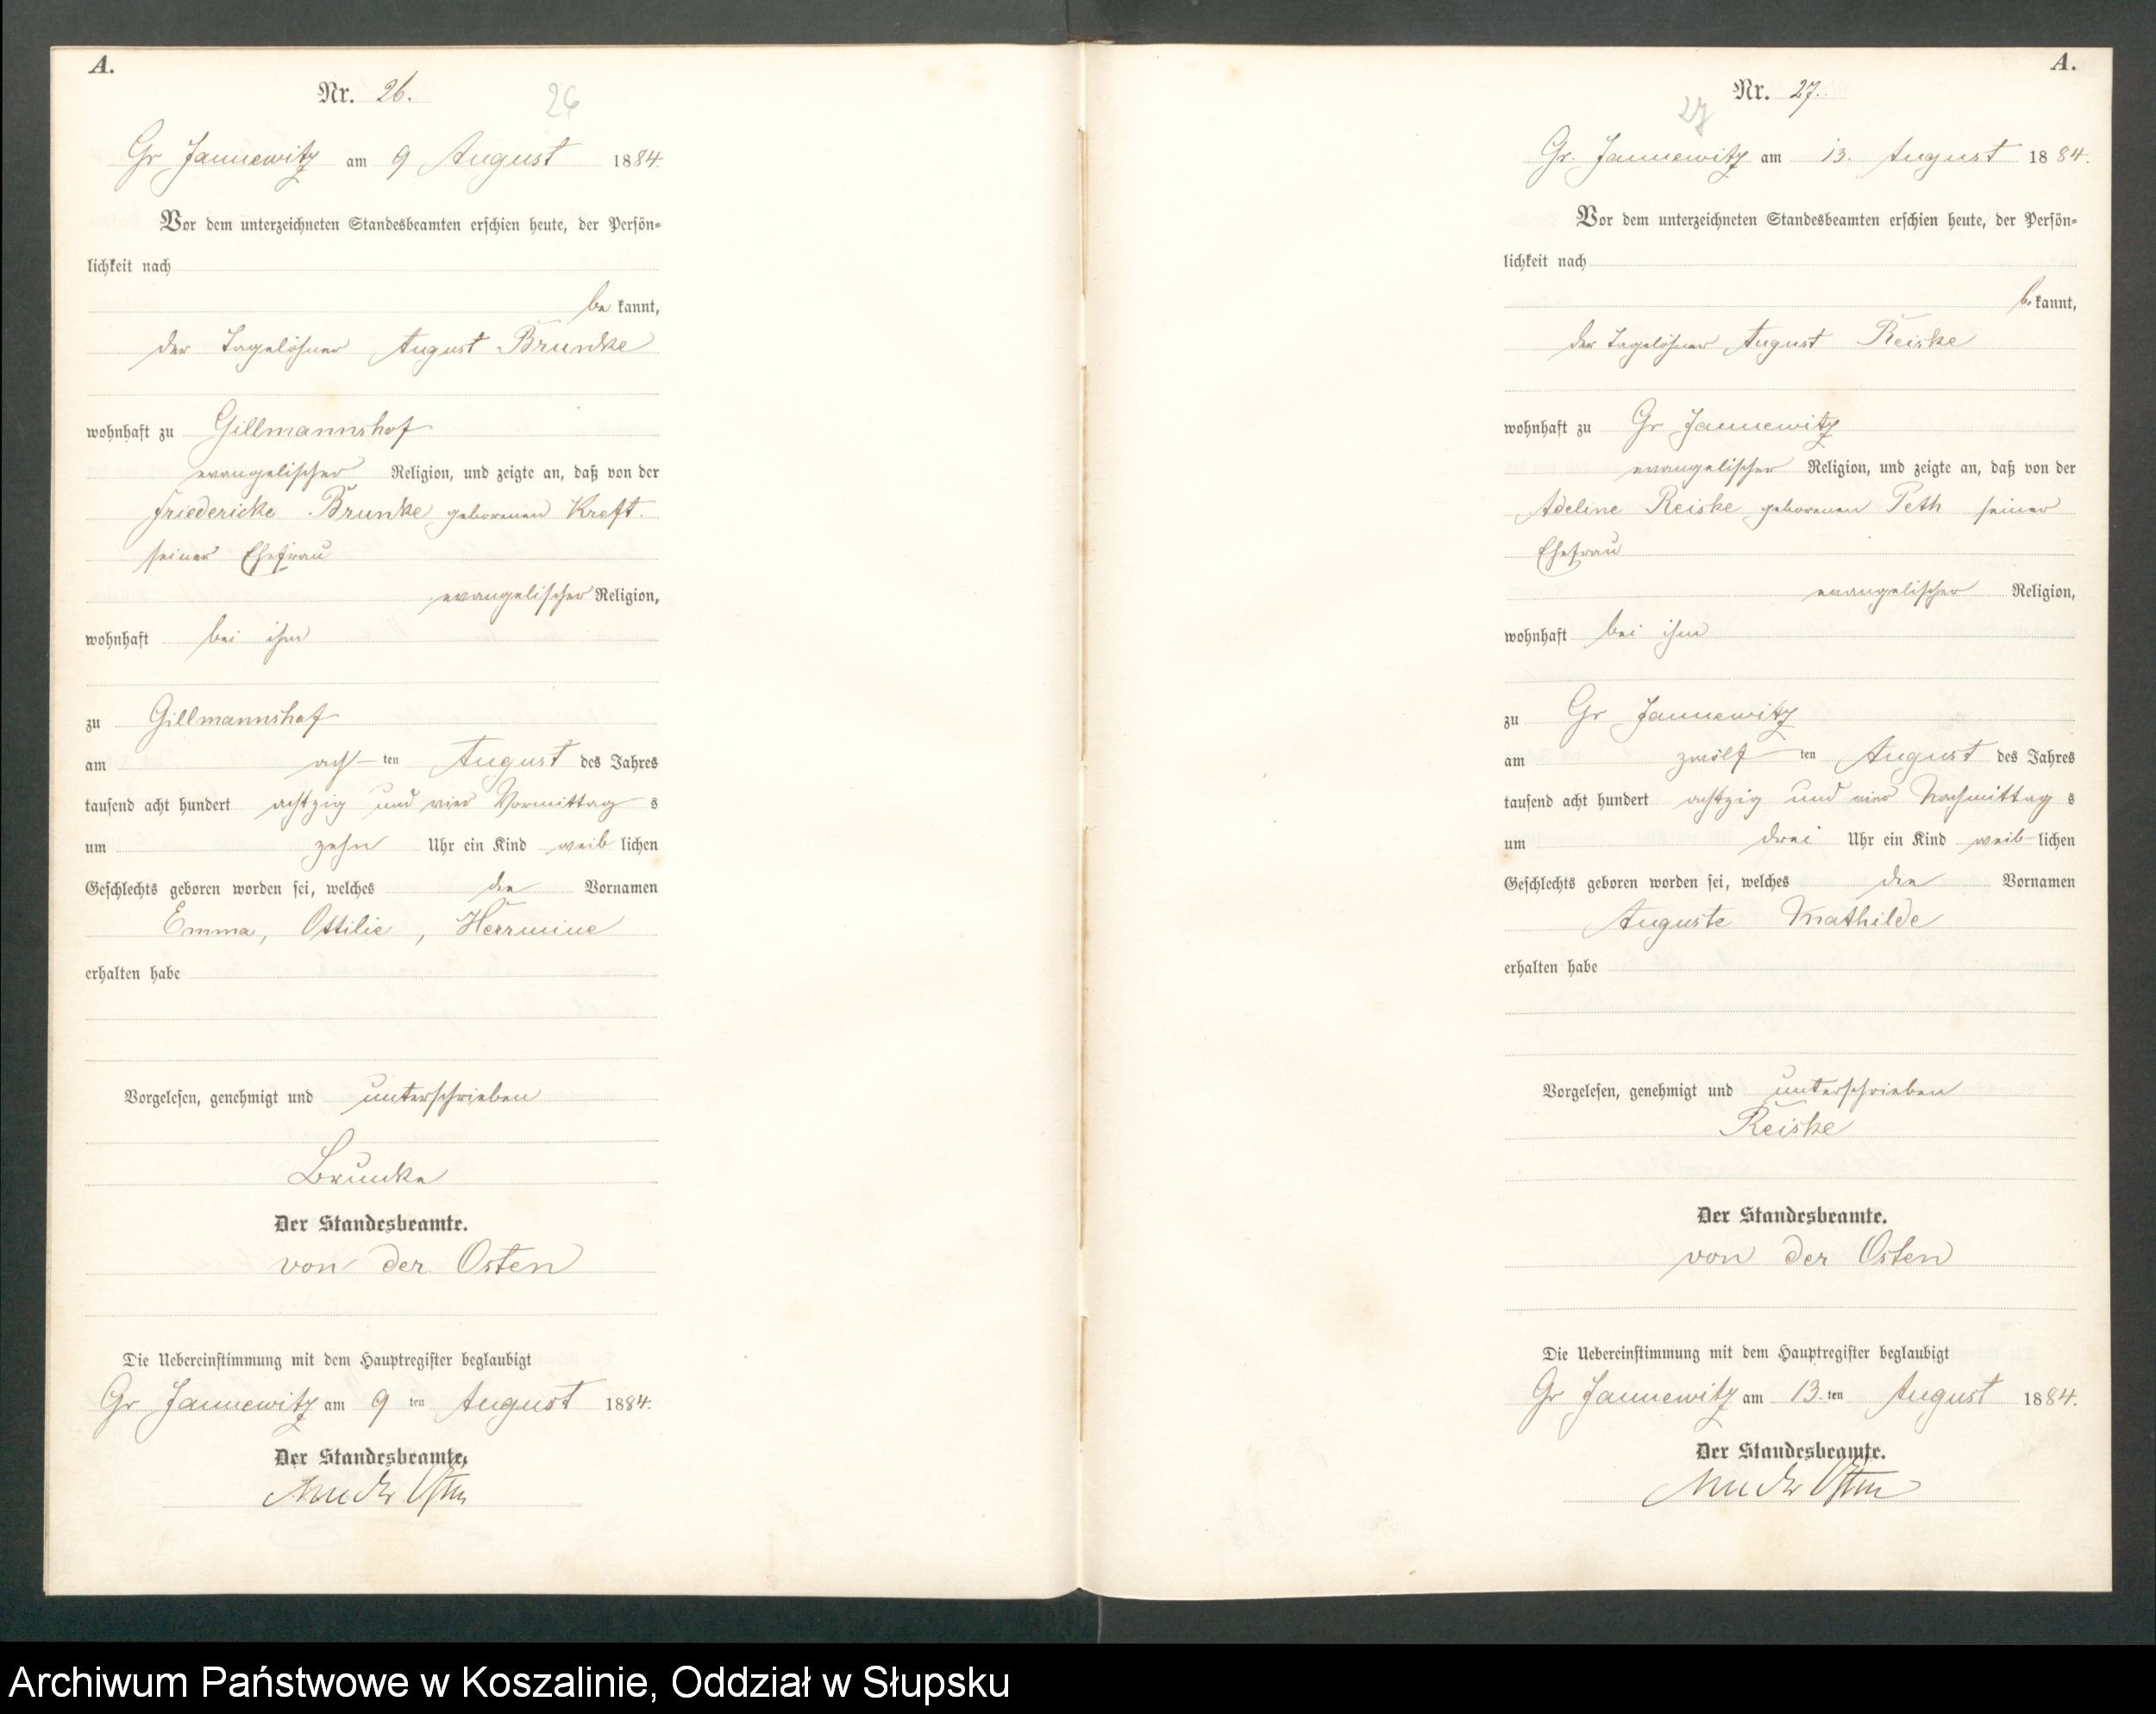 A.
Nr. 26.
26
Gr Jannewitz am 9 August 1884.
Vor dem unterzeichneten Standesbeamten erschien heute, der Persön-
lichkeit nach
be kannt,
der Tagelöhner August Brunke
wohnhaft zu Gillmannshof
evangelischer Religion, und zeigte an, daß von der
Friedericke Brunke geborenen Kreft.
seiner Ehefrau
evangelischer Religion,
wohnhaft bei ihm
zu Gillmannshof
am ach- ten August des Jahres
tausend acht hundert achtzig und vier Vormittag s
um zehn Uhr ein Kind weib lichen
Geschlechts geboren worden sei, welches die Vornamen
Emma, Ottilie, Herrmine
erhalten habe
Vorgelesen, genehmigt und unterschrieben
Brunke
Der Standesbeamte.
von der Osten
Die Uebereinstimmung mit dem Hauptregister beglaubigt
Gr Jannewitz am 9 ten August 1884.
Der Standesbeamte.
von der Osten
A.
Nr. 27.
27
Gr. Jannewitz am 13. August 1884.
Vor dem unterzeichneten Standesbeamten erschien heute, der Persön-
lichkeit nach
be kannt,
der Tagelöhner August Reiske
wohnhaft zu Gr Jannewitz
evangelischer Religion, und zeigte an, daß von der
Adeline Reiske geborenen Peth seiner
Ehefrau
evangelischer Religion,
wohnhaft bei ihm
zu Gr Jannewitz
am zwölf ten August des Jahres
tausend acht hundert achtzig und vier Nachmittag s
um drei Uhr ein Kind weib lichen
Geschlechts geboren worden sei, welches die Vornamen
Auguste Mathilde
erhalten habe
Vorgelesen, genehmigt und unterschrieben
Reiske
Der Standesbeamte.
von der Osten
Die Uebereinstimmung mit dem Hauptregister beglaubigt
Gr Jannewitz am 13. ten August 1884.
Der Standesbeamte.
von der Osten
Archiwum Państwowe w Koszalinie, Oddział w Słupsku